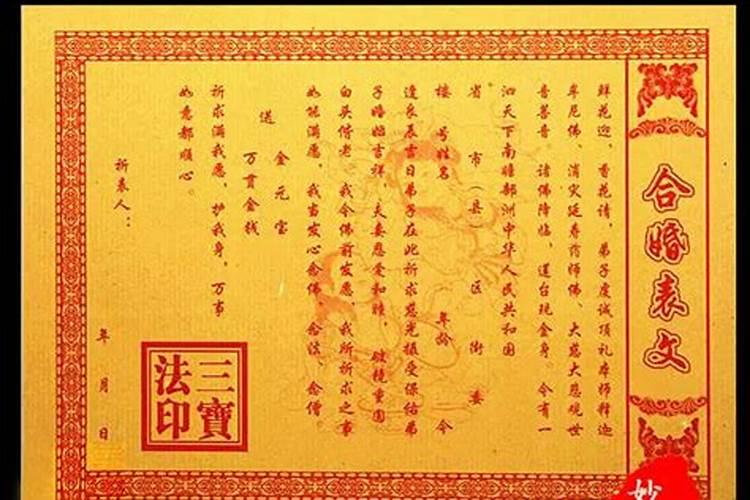 合婚表文
鲜花迎，香花请，弟子虔诚顶礼本师释迦
牟尼佛、消灾延寿药师佛、大慈大悲观世
音菩萨。诸佛降临，道台现金身。今有一
泗天下南瞻部洲中华人民共和国
省 市（县 区 街 委
楼 号姓名 年龄 今
逢良辰吉日弟子在此祈求慈光摄受保佑弟
子婚姻吉祥，夫妻恩爱和睦，破镜重圆
白头偕老。我今佛前发愿，我所祈求之事
如能满愿，我当发心念佛、念法、念僧。
送 金元宝
万贯金钱
祈求满我愿，护我身，万事
如意都顺心。
祈表人：
年 月 日
三寶
法印
妙